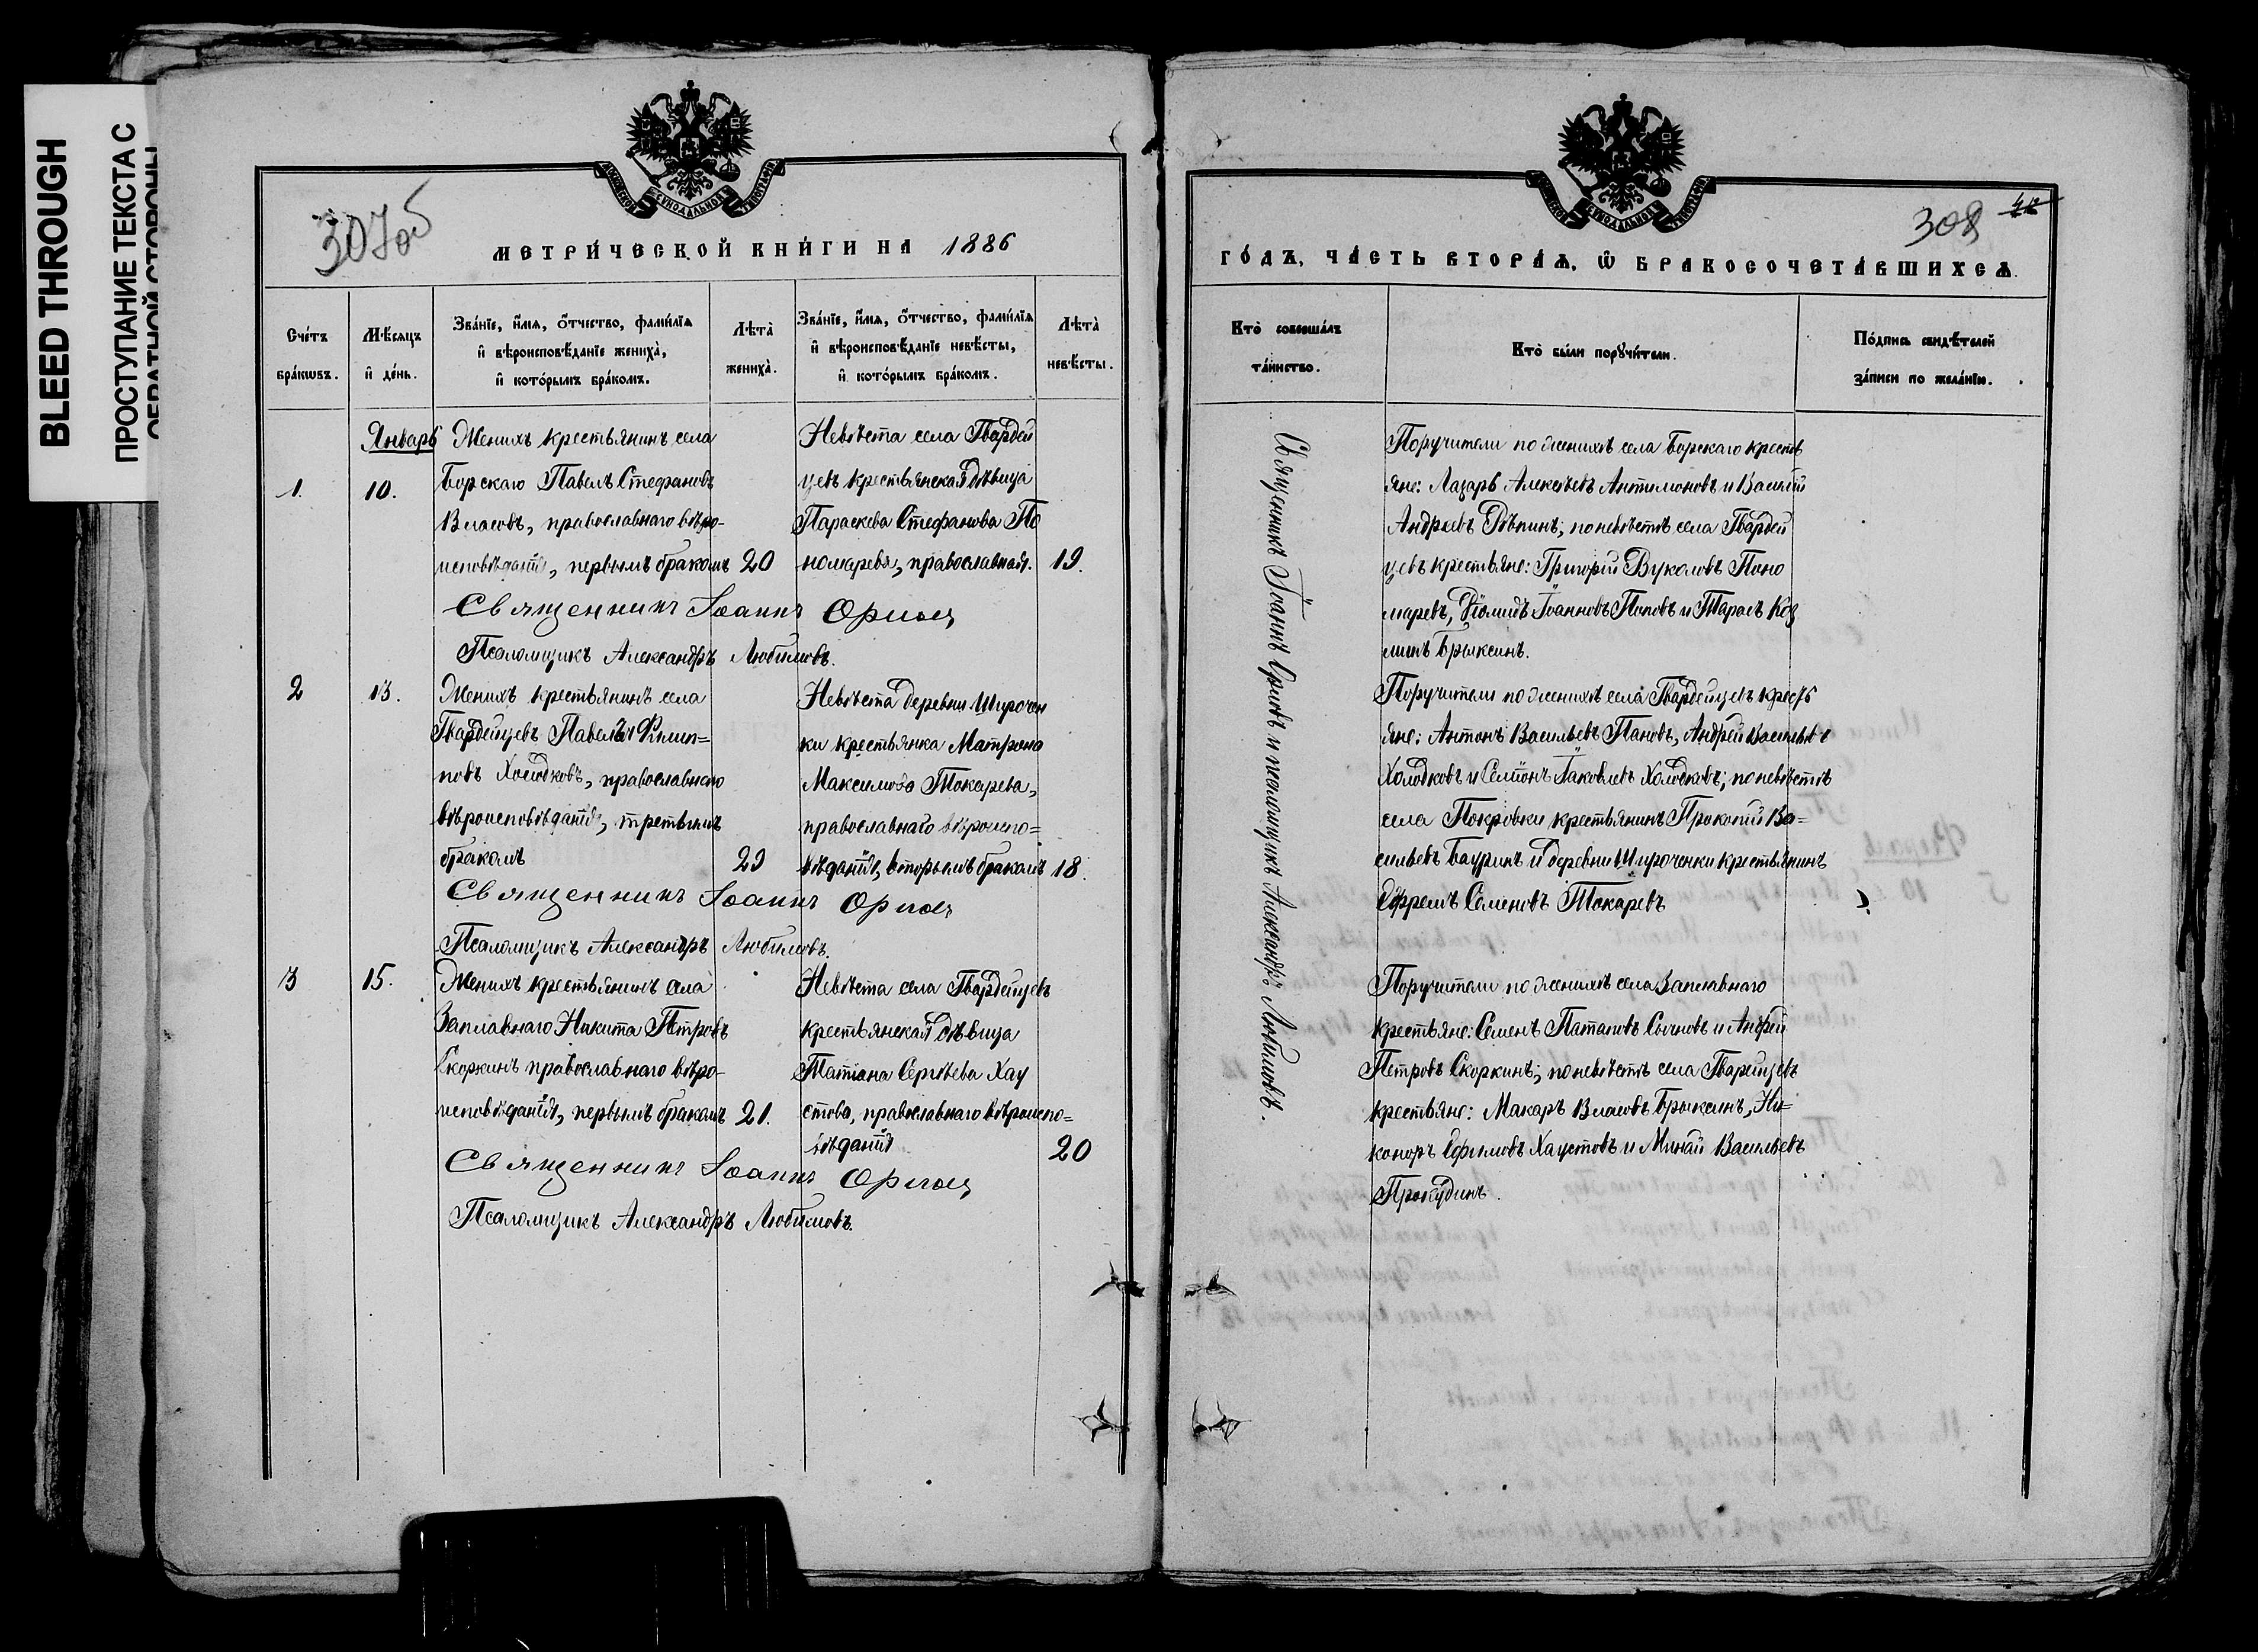 BLEED THROUGH
ПРОСТУПАНИЕ ТЕКСТА С
ОБРАТНОЙ СТОРОНЫ
307об
МОСКОВСКОЙ СѴНОДАЛЬНОЙ ТИПОГРАФІИ
МЕТРИ́ЧЕСКОЙ КНИ́ГИ НА 1886
Сче́тъ
бра́кѡвъ.
Мѣ́сяцъ
и҆ де́нь.
Зва́нїе, и҆́мѧ, ѻ҆́тчество, фами́лїѧ
и҆ вѣроисповѣ́данїе жениха̀,
и҆ кото́рымъ бра́комъ.
Лѣта̀
жениха̀.
Зва́нїе, и҆́мѧ, ѻ҆́тчество, фами́лїѧ
и҆ вѣроисповѣ́данїе невѣ́сты,
и҆ кото́рымъ бра́комъ.
Лѣта̀
невѣ́сты.
Январь
1.
10.
Женихъ крестьянинъ села
Борскаго Павелъ Стефановъ
Власовъ, православнаго вѣро-
исповѣданія, первымъ бракомъ
20
Невѣста села Гвардей
цевъ крестьянская дѣвица
Параскева Стефанова По
номарева, православная.
19.
Священникъ Іоаннъ Орловъ
Псаломщикъ Александръ Любимовъ.
2
13.
Женихъ крестьянинъ села
Гвардейцевъ Павелъ Филип=
повъ Холодковъ, православнаго
вѣроисповѣданія, третьимъ
бракомъ
29
Невѣста деревни Широчен
ки крестьянка Матрона
Максимова Токарева,
православнаго вѣроиспо=
вѣданія, вторымъ бракомъ
18.
Священникъ Іоаннъ Орловъ
Псаломщикъ Александръ Любимовъ.
3
15.
Женихъ крестьянинъ села
Заплавнаго Никита Петровъ
Скоркинъ православнаго вѣро-
исповѣданія, первымъ бракомъ
21.
Невѣста села Гвардейцевъ
крестьянская дѣвица
Татіана Сергѣева Хау
стова, православнаго вѣроиспо=
вѣданія
20
Священникъ Іоаннъ Орловъ
Псаломщикъ Александръ Любимовъ.
308
МОСКОВСКОЙ СѴНОДАЛЬНОЙ ТИПОГРАФІИ
ГО́ДЪ, ЧА́СТЬ ВТОРА́Ѧ, Ѡ҆ БРАКОСОЧЕТА́ВШИХСѦ.
Кто̀ соверша́лъ
та́инство.
Кто̀ бы́ли порꙋчи́тели.
По́дпись свидѣ́телей
за́писи по жела́нїю.
Священникъ Іоаннъ Орловъ и псаломщикъ Александръ Любимовъ.
Поручители по женихѣ села Борскаго кресть
яне: Лазарь Алексѣевъ Антимоновъ и Василій
Андреевъ Рѣпинъ; по невѣстѣ села Гвардей
цевъ крестьяне: Григорій Вуколовъ Поно
маревъ, Діомидъ Іоанновъ Поповъ и Тарасъ Коз
минъ Брыксинъ.
Поручители по женихѣ села Гвардейцевъ кресть
яне: Антонъ Васильевъ Пановъ, Андрей Васильевъ
Холодковъ и Семіонъ Іаковлевъ Холодковъ; по невѣстѣ
села Покровки крестьянинъ Прокопій Ва=
сильевъ Бауринъ и деревни Широченки крестьянинъ
Ефремъ Семеновъ Токаревъ
Поручители по женихѣ села Заплавнаго
крестьяне: Семенъ Патаповъ Сычновъ и Андрей
Петровъ Скоркинъ; по невѣстѣ села Гварейцевъ
крестьяне: Макаръ Власовъ Брыксинъ, Ни=
коноръ Ефимовъ Хаустовъ и Минай Васильевъ
Прокудинъ.